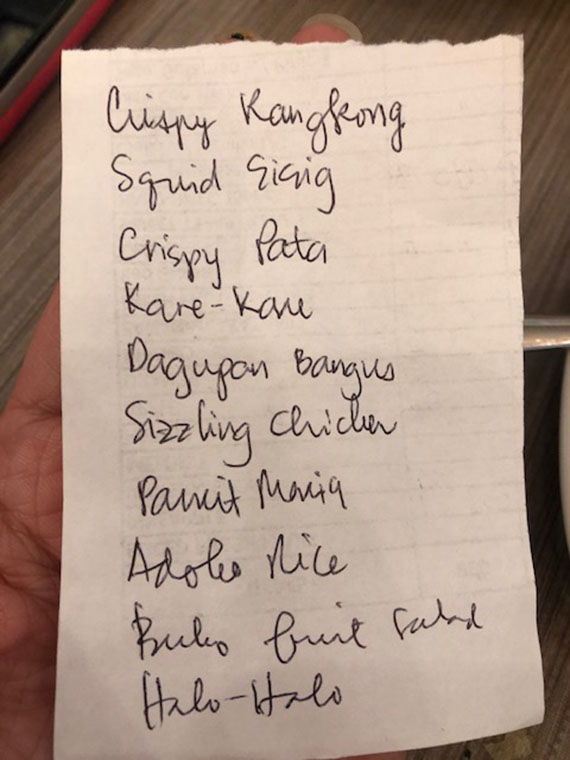 Crispy Kangkong
Squid Sisig
Crispy Pata
Kare-Kare
Dagupan Bangus
Sizzling Chicken
Pancit Maria
Adobo Rice
Buko fruit Salad
Halo-Halo